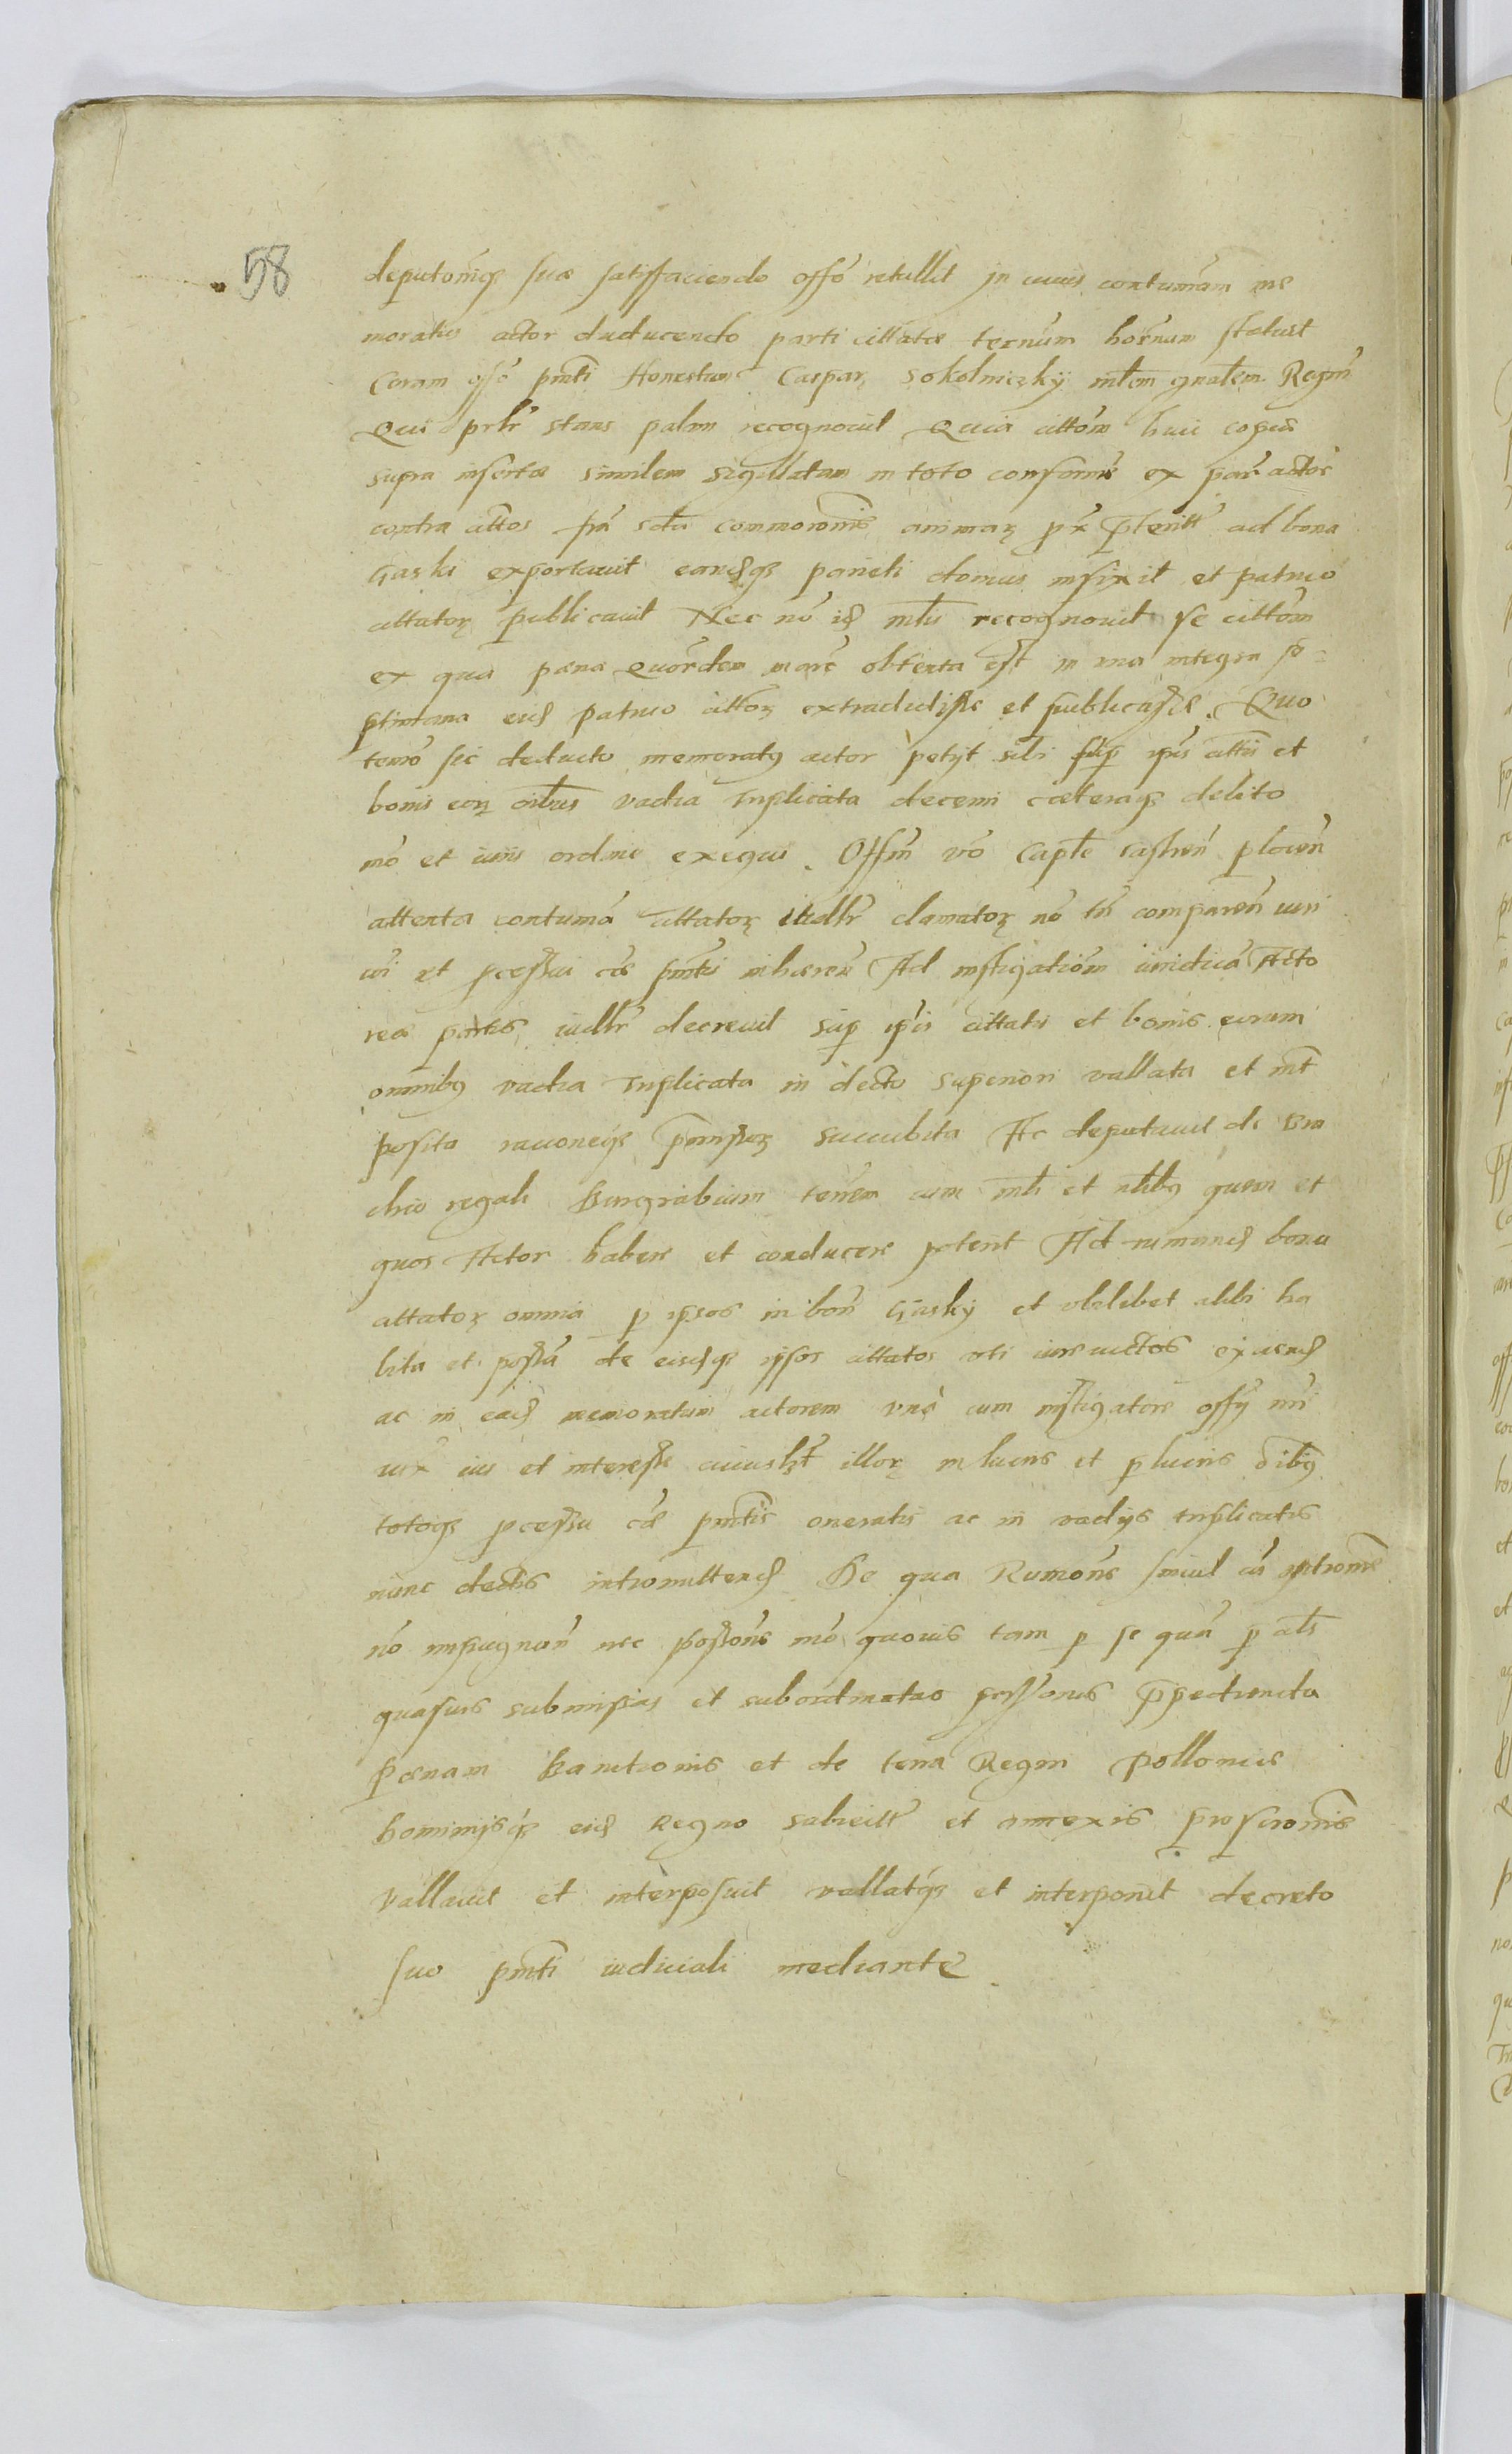 58
deputonisq suae satisfaciendo offo retullit jn cuius contumam me
moratus actor duducendo parti cittatae ternum hornum statuit
Coram offo pnti Honestum Caspar Sokolniczky mlem gnalem Regni
Qui prlr stans palam recognovit Quia cittom huic copiae
supra insertae similem sigillatam in toto conformem ex par actor
contra cittos fra scda commoronis animar px pteritt ad bona
Gaski exportavit eandq parieti domus infixit et patruo
cittator publicavit Nec no id mlis recognovit se cittom
ex qua paena quordem marc obtenta est in una integra se
ptimana eid patruo cittor extradidisse et publicasse. Quo
termo sic deducto memoratus actor petyt sibi sup ipis cittis et
bonis eor oibus vadia triplicata decerni caeteraq debito
mo et iuris ordine exequi. Offm vo Caple castren plocen
attenta contuma cittator iudlr clamator no tn comparen iuri
et pcessui cae pntis inhaeren Ad instigationem iuridica Acto
reae partis iudlr decrevit sup ipis cittatis et bonis eorum
omnibus vadia triplicata in decto superiori vallata et
posita racioneq pmissor succubita Ac deputavit de bra
chio regali Burgrabium terrem cum mli et nlibus quem et
quos Actor habere et conducere poterit Ad rumand bona
cittator omnia p ipsos in bon Gasky et ubilibet alibi ha
bita et possa de eisdq ipsos cittatos uti iure victos exuend
ac in ead memoratum actorem una cum instigatore offy nri
iux ius et interesse cuiuslt illor in lucris et plucris oibus
totoq pcessu cae pntis oneratis ac in vadys triplicatis
nunc dectis intromittend De qua Rumone simul cu intromne
no impugnan nec possone mo quovis tam p se qua p als
quasvis submissas et subordinatas personas ppedienda
paenam Bannitionis et de terra Regni Polloniae
hominijsq eid Regno subiectis et annexis proscrionis
vallavit et interposuit vallatq et interponit decreto
suo pnti iudiciali mediante.